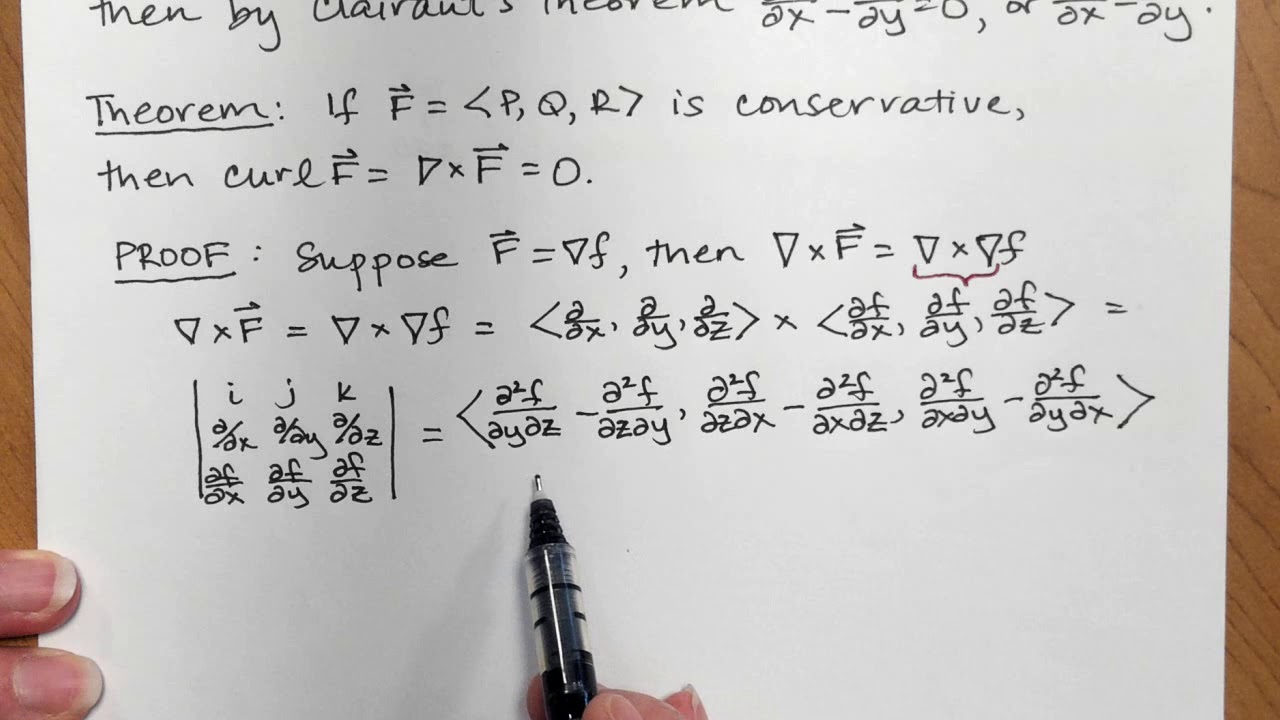 then by Clairaut's Theorem ∂x − ∂y = 0, or ∂x = ∂y.
Theorem: If F⃗ = <P, Q, R> is conservative,
then curl F⃗ = ∇ × F⃗ = 0.
PROOF: Suppose F⃗ = ∇f, then ∇ × F⃗ = ∇ × ∇f
∇ × F⃗ = ∇ × ∇f = <∂/∂x, ∂/∂y, ∂/∂z> × <∂f/∂x, ∂f/∂y, ∂f/∂z> =
| i j k |
| ∂/∂x ∂/∂y ∂/∂z | = <∂²f/∂y∂z − ∂²f/∂z∂y, ∂²f/∂z∂x − ∂²f/∂x∂z, ∂²f/∂x∂y − ∂²f/∂y∂x>
| ∂f/∂x ∂f/∂y ∂f/∂z |